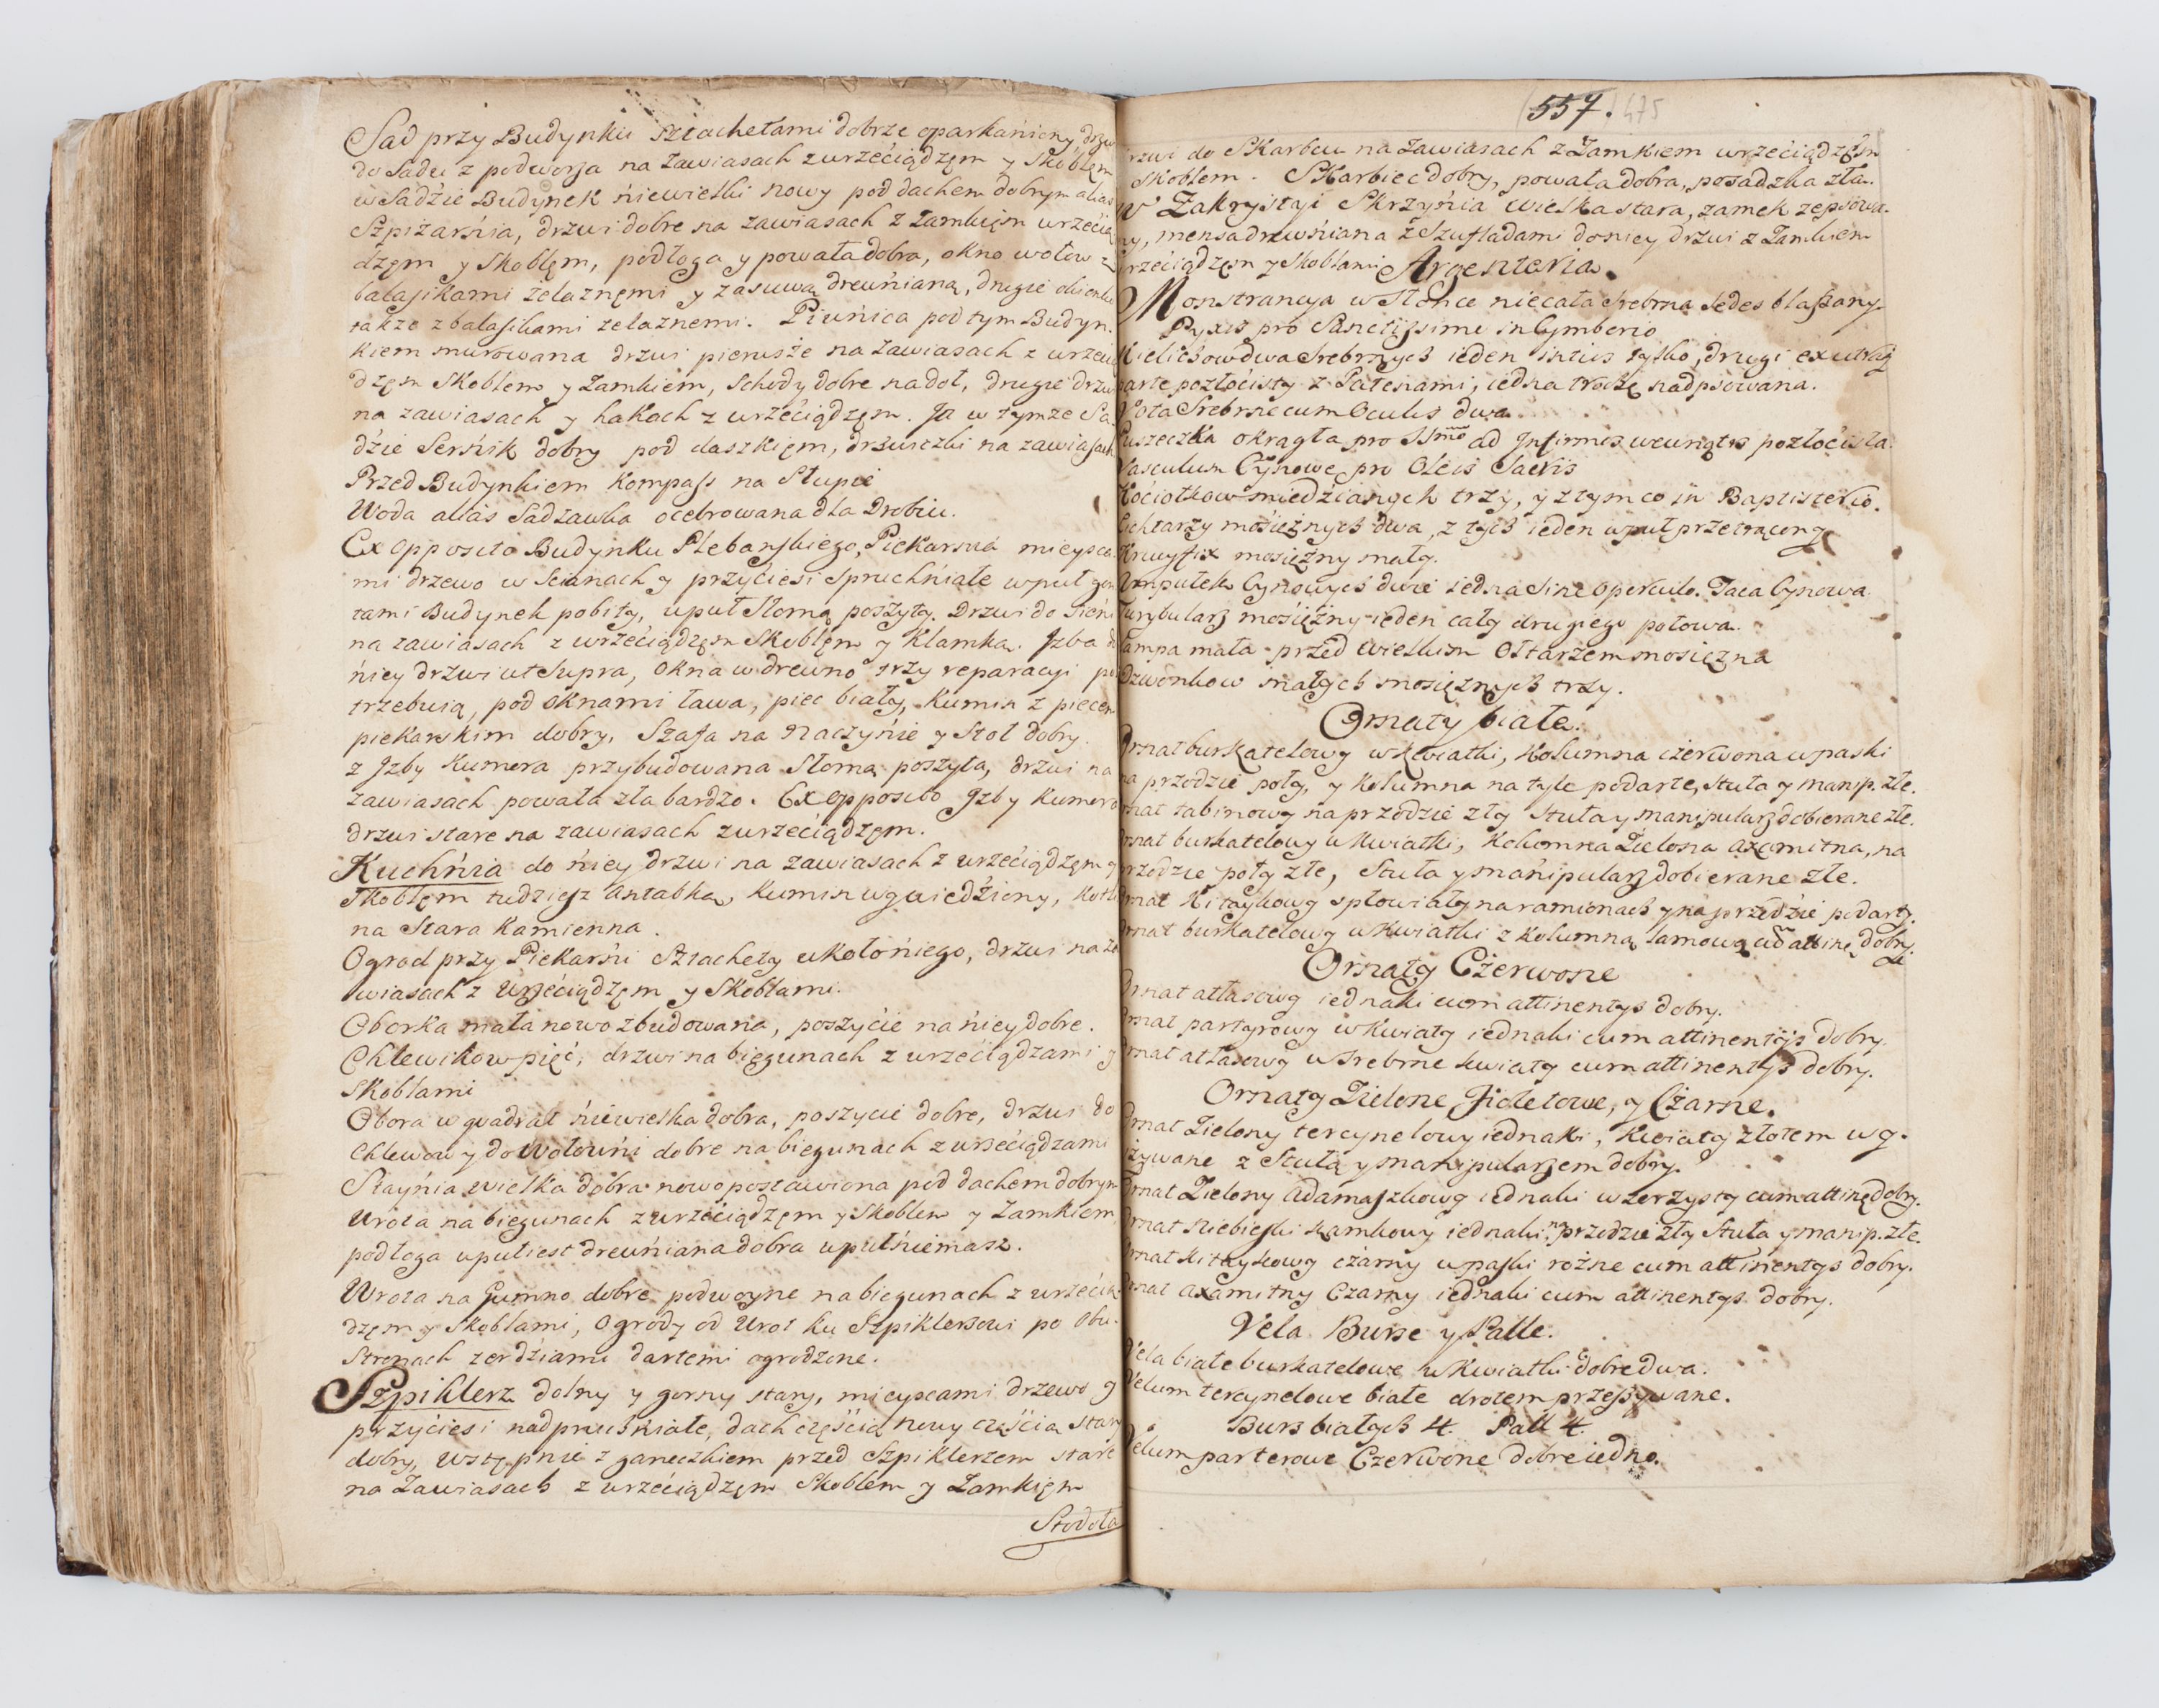 Sad przy Budynku Sztachetami dobrze oparkaniony, drzwi
do Sadu z podworza na zawiasach z wrzeciądzęm y Skoblem
w Sadźie Budynek niewielki nowy pod dachem dobrym alias
Szpizarńia, drzwi dobre na zawiasach z zamkięm wrzecią
dzęm y Skoblęm, podłoga y powała dobra, okno w ołow z
balasikami żelaznęmi y zasuwą drewńianą, drugie okienko
także z balasikami żelaznemi. Piwńica pod tym Budyn.
kiem murowana drzwi pierwsze na zawiasach z wrzecią
dzęm Skoblem y zamkiem, Schody dobre na doł, drugie drzwi
na zawiasach y hakach z wrzećiądzęm. It w tymze Sa.
dźie Serńik dobry pod daszkięm, drzwiczki na zawiasach
Przed Budynkiem Kompass na Słupie
Woda alias Sadzawka ocebrowana dla Drobiu.
Ex opposito Budynku Plebanskiego, Piekarnia mieysca
mi drzewo w Scianach y przyćiesi Spruchńiałe wpuł gon
tami Budynek pobity, wpuł Słomą poszyty. Drzwi do Sieni
na zawiasach z wrzećiądzęm Skoblęm y Klamka. Izba do
ńiey drzwi ut Supra, okna w drewno trzy reparacyi po
trzebuią, pod oknami ława, piec biały, Kumin z piecem
piekarskim dobry, Szafa na naczyńie y Stoł dobry.
z Izby Kumora przybudowana Słomą poszyta, drzwi na
zawiasach powała zła bardzo. Ex opposito Izby Kumora
drzwi stare na zawiasach z wrzećiądzęm.
Kuchńia do ńiey drzwi na zawiasach z wrzećiądzęm y
Skoblęm tudziesz Antabka, Kumin wywiedźiony, Kotli
na Stara Kamienna.
Ogrod przy Piekarńi Sztachety wkoło ńiego, drzwi na za
wiasach z wrzećiądzęm y Skoblami.
Oborka mała nowo zbudowana, poszyćie na ńiey dobre.
Chlewikow pięć, drzwi na biegunach z wrzećiądzami y
Skoblami
Obora w quadrat ńiewielka dobra, poszycie dobre, drzwi do
Chlewow y do Wołowńi dobre na biegunach z wrzećiądzami
Stayńia wielka dobra nowo postawiona pod dachem dobrym
Wrota na biegunach z wrzećiądzęm y Skoblem y Zamkiem
podłoga wpuł iest drewńiana dobra wpuł ńiemasz.
Wrota na Gumno dobre podwoyne na biegunach z wrzecią
dzęm y Skoblami, ogrody od Wrot ku Szpiklerzowi po obu
Stronach zerdziami dartemi ogrodzone.
Szpiklerz dolny y gorny stary, mieyscami drzewo y
przyćiesi nadpruchńiałe, dach częśćią nowy częścią stary
dobry, Wstępnie z ganeczkiem przed Szpiklerzem stare
na Zawiasach z wrzećiądzęm Skoblem y Zamkięm
Stodoła
557. 475
drzwi do Skarbcu na zawiasach z Zamkiem wrzeciądzęm
Skoblem. Skarbiec dobry, powała dobra, posadzka zła.
W Zakrystyi Skrzyńia wielka stara, zamek zepsowa.
ny, mensa drewńiana z Szufladami do niey drzwi z Zamkiem
wrzećiądzęm y Skoblami Argenteria.
Monstrancya w Słonce niecała Srebrna Sedes blaszany
Pyxis pro Sanctissimo in Cymborio
Kielichow dwa Srebrnych ieden intus tylko, drugi ex utraq
parte pozłoćisty z Patenami, iedna trochę nadpsowana.
Vota Srebrne cum Oculis dwa
Puszeczka okrągła pro SSmo ad Infirmos wewnątrz pozłoćista
Vasculum Cynowe pro Oleis Sacris
Kociołkow miedźianych trzy, y z tym co in Baptisterio.
Lichtarzy mośiężnych dwa, z tych ieden wpuł przetrącony
Krucyfix mosiężny mały.
Ampułek Cynowych dwie iedna Sine operculo. Taca Cynowa
Turybularz mośiężny ieden cały drugiego połowa.
Lampa mała przed wielkim Ołtarzem mosiężna
dzwonkow małych mosiężnych trzy.
Ornaty białe.
Ornat burkatelowy w kwiatki, Kolumna czerwona w paski
na przodzie poły, y Kolumna na tyle podarte, Stuła y manip. złe.
Ornat tabinowy na przodzie zły Stuła y manipularz dobierane złe.
Ornat burkatelowy w kwiatki, Kolomna Zielona axamitna, na
przodzie poły złe, Stuła y mańipularz dobierane złe.
Ornat Kitaykowy spłowiały na ramionach y na przodźie podarty.
Ornat burkatelowy w kwiatki z Kolumną lamową cum attine dobry.
Ornaty Czerwone
Ornat atłasowy iednaki cum attinentys dobry.
Ornat partyrowy w Kwiaty iednaki cum attinentys dobry.
Ornat atłasowy w Srebrne kwiaty cum attinentys dobry.
Ornaty Zielone, Fioletowe, y Czarne.
Ornat Zielony tercynelowy iednaki, Kwiaty złotem wy.
szywane z Stułą y manipularzem dobry.
Ornat Zielony Adamaszkowy iednaki wzorzysty cum attinę dobry.
Ornat Niebieski kamkowy iednaki na przodzie zły Stuła y manip. złe.
Ornat Kitaykowy czarny w paski rożne cum attinentys dobry.
Ornat axamitny Czarny iednaki cum attinentys dobry.
Vela Burse y Palle.
Vela białe burkatelowe w Kwiatki dobre dwa.
Velum tercynelowe białe drotem przeszywane.
Burs białych 4. Pall 4.
Velum parterowe Czerwone dobre iedno.